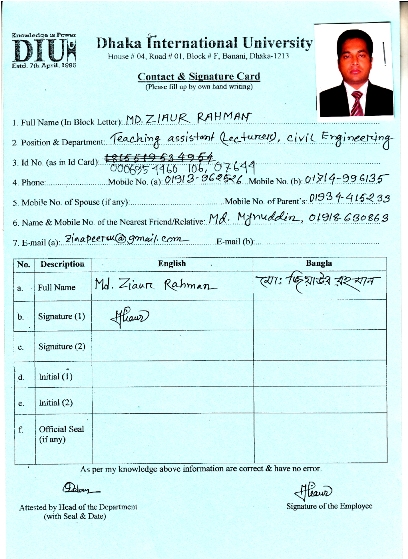 Knowledge is Power
DIU
Estd. 7th April, 1995
Dhaka International University
House # 04, Road # 01, Block # F, Banani, Dhaka-1213
Contact & Signature Card
(Please fill up by own hand writing)
1. Full Name (In Block Letter): MD. ZIAUR RAHMAN
2. Position & Department: Teaching assistant (Lecturer), civil Engineering
3. Id No. (as in Id Card):
4. Phone: Mobile No. (a): 01913-962526 Mobile No. (b): 01714-996135
5. Mobile No. of Spouse (if any): Mobile No. of Parent's: 01934-415233
6. Name & Mobile No. of the Nearest Friend/Relative: Md. 01918-630863
7. E-mail (a): E-mail (b):
No. Description English Bangla
a. Full Name Md. Ziaur Rahman মোঃ জিয়াউর রহমান
b. Signature (1)
c. Signature (2)
d. Initial (1)
e. Initial (2)
f. Official Seal
(if any)
As per my knowledge above information are correct & have no error.
Attested by Head of the Department Signature of the Employee
(with Seal & Date)